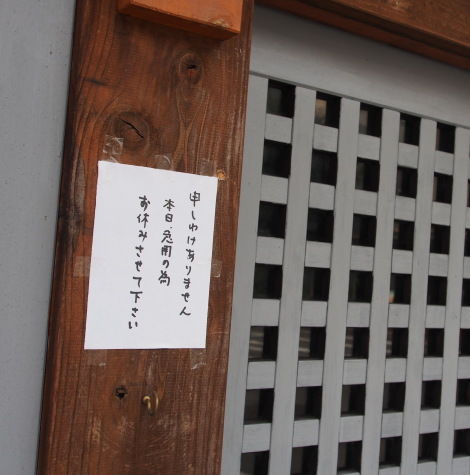 申しわけありません
本日、急用の為
お休みさせて下さい